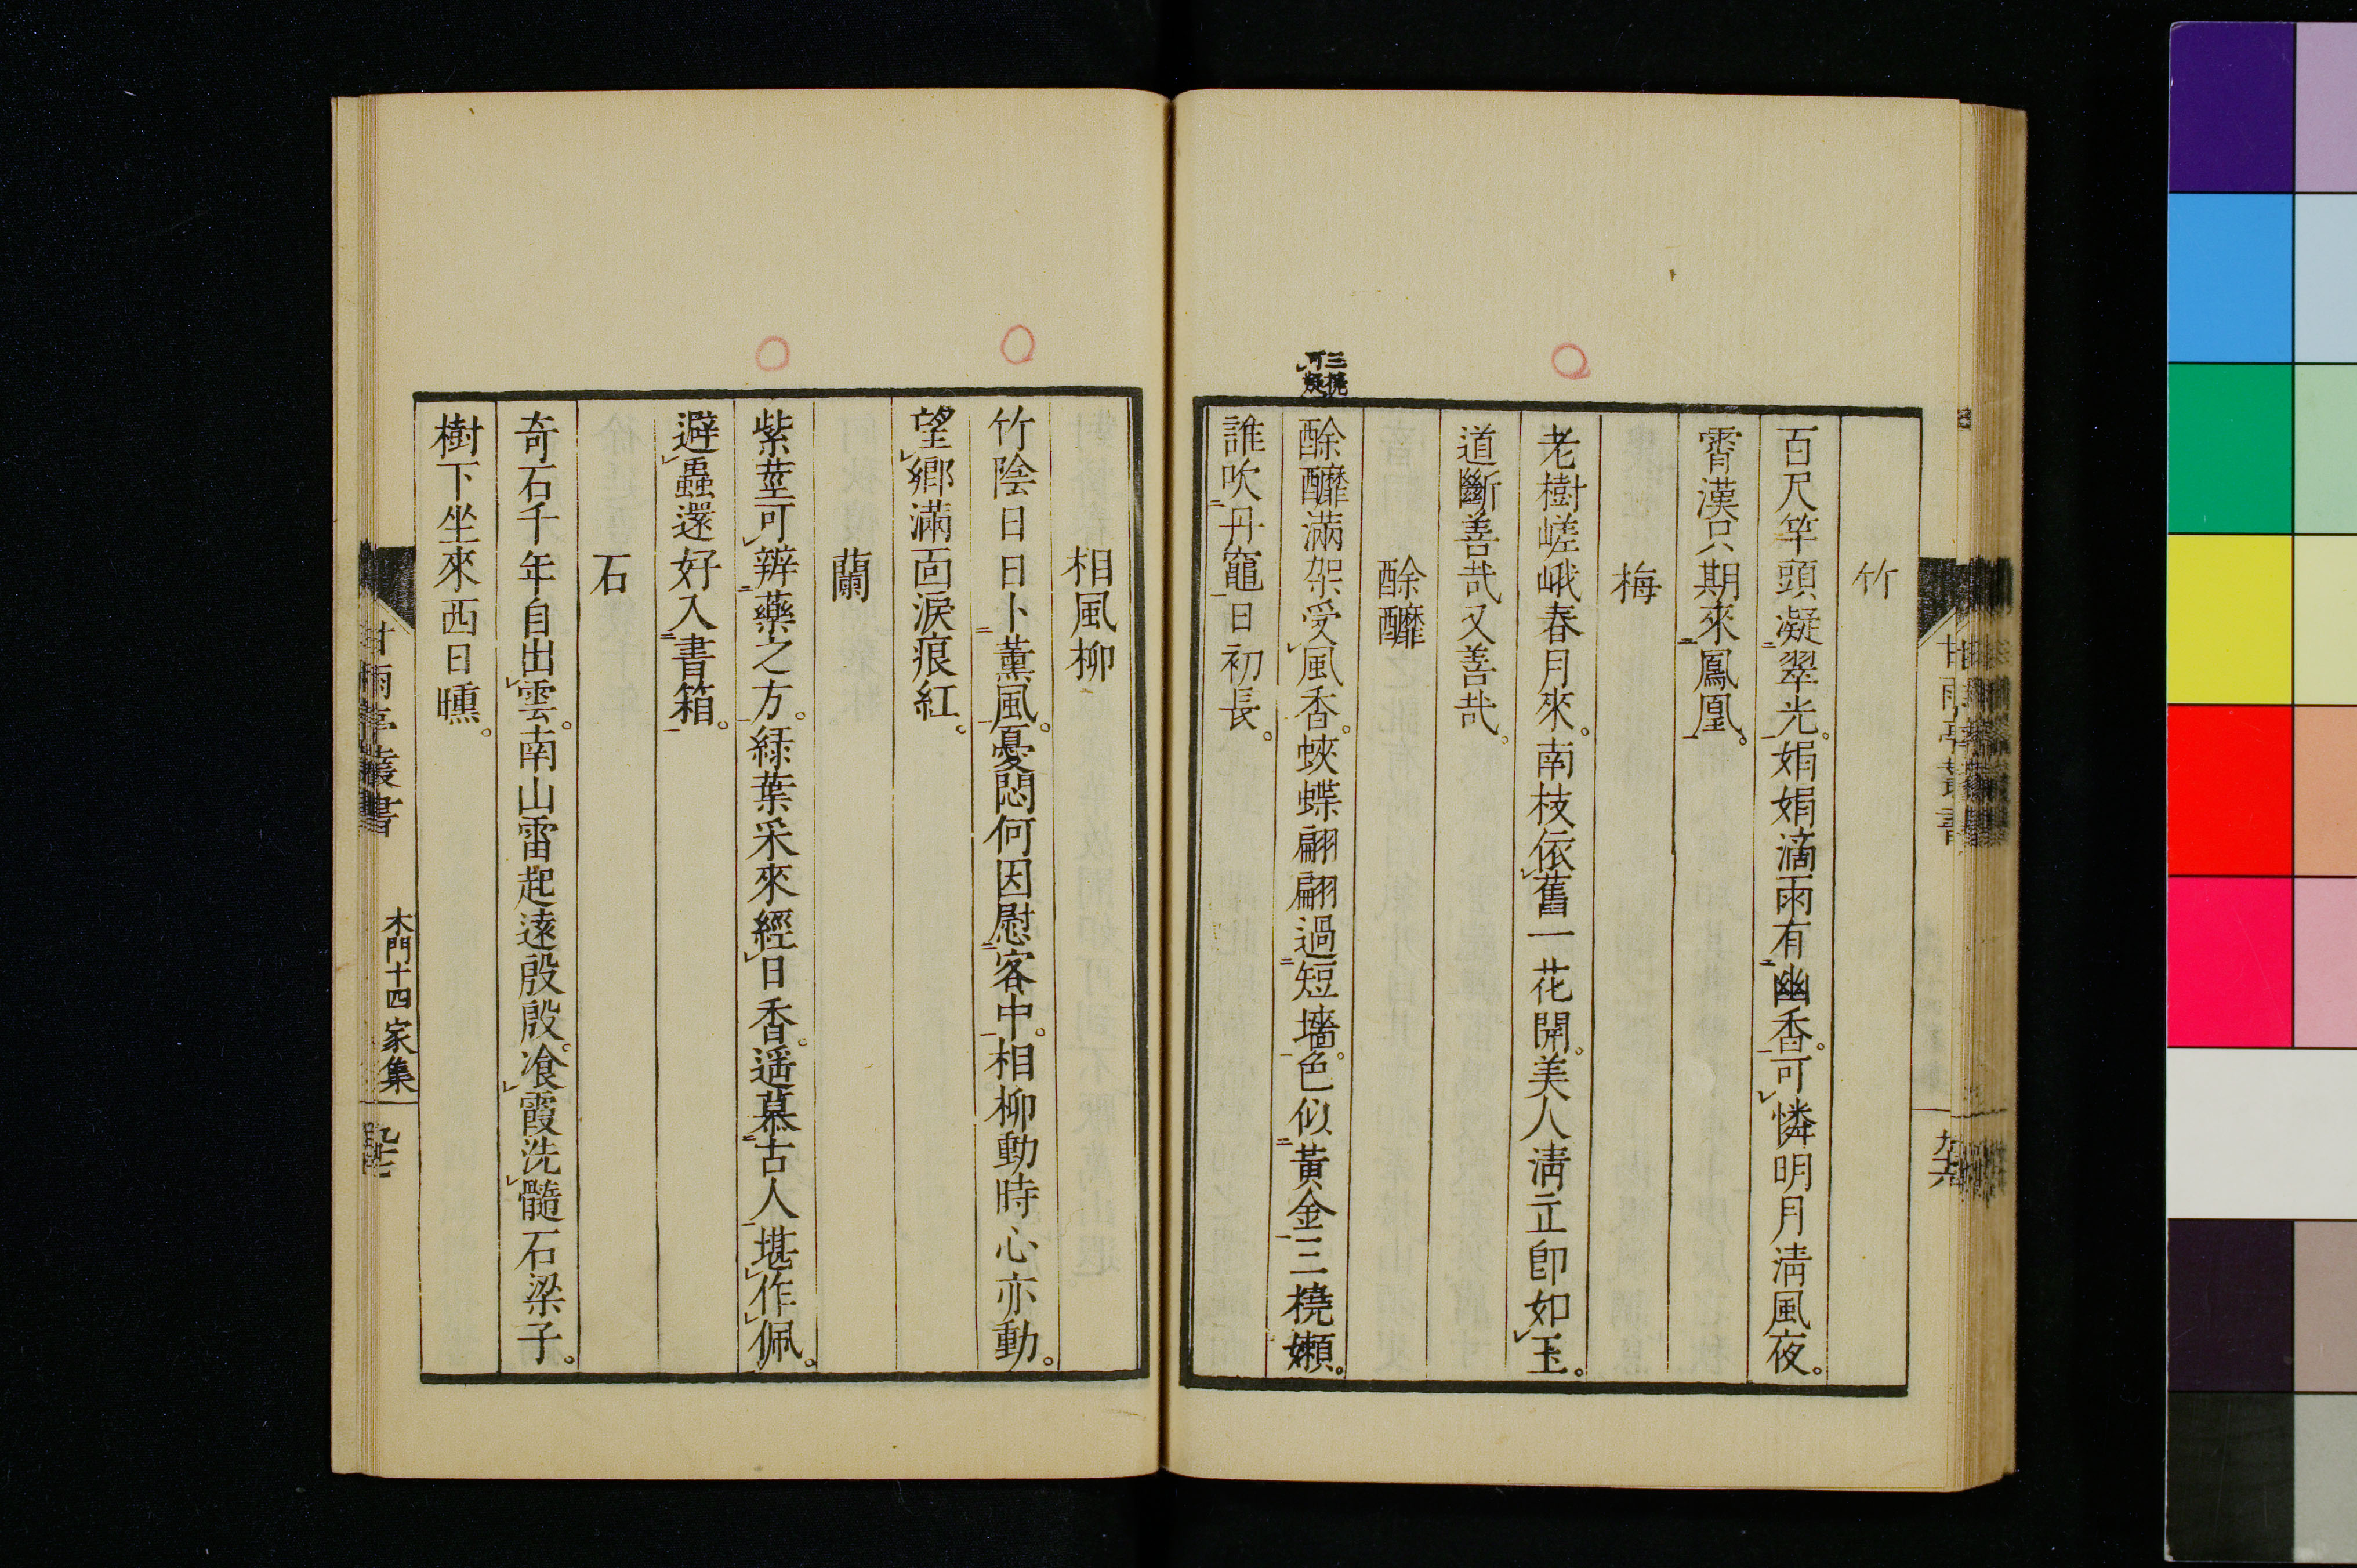 竹
百尺竿頭凝翠光。娟娟滴雨有幽香。可憐明月淸風夜。
霄漢只期來鳳凰。
梅
老樹嵯峨春月來。南枝依舊一花開。美人淸立卽如玉。
道斷善哉又善哉。
酴醿
三橈
可疑
酴醿滿架受風香。蛺蝶翩翩過短墻。色似黃金三橈嬾。
誰吹丹竈日初長。
甘雨亭叢書
九十六
相風柳
竹陰日日卜薰風。憂悶何因慰客中。相柳動時心亦動。
望鄉滿面淚痕紅。
蘭
紫莖可辨藥之方。綠葉采來經日香。遥慕古人堪作佩。
避蟲還好入書箱。
石
奇石千年自出雲。南山雷起遠殷殷。飡霞洗髓石梁子。
樹下坐來西日曛。
甘雨亭叢書
木門十四家集